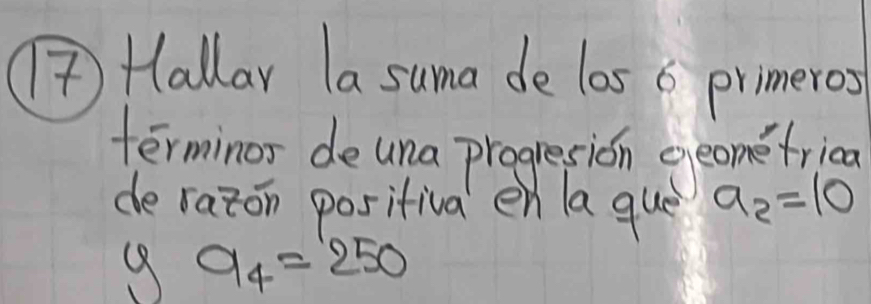 17 Hallar la suma de los 6 primeros
términos de una progresión geométrica
de razón positiva en la que a₂=10
y a₄=250